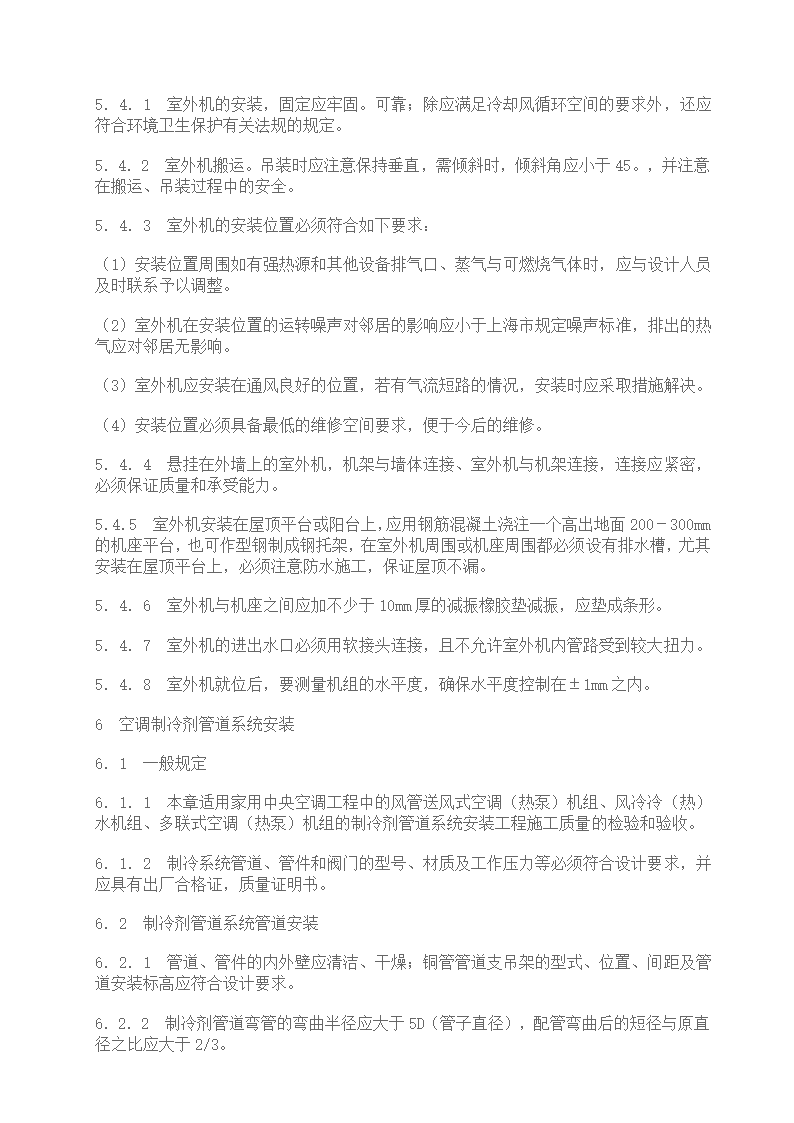 5. 4. 1　室外机的安装，固定应牢固。可靠；除应满足冷却风循环空间的要求外，还应
符合环境卫生保护有关法规的规定。
5. 4. 2　室外机搬运。吊装时应注意保持垂直，需倾斜时，倾斜角应小于 45。，并注意
在搬运、吊装过程中的安全。
5. 4. 3　室外机的安装位置必须符合如下要求：
（1）安装位置周围如有强热源和其他设备排气口、蒸气与可燃烧气体时，应与设计人员
及时联系予以调整。
（2）室外机在安装位置的运转噪声对邻居的影响应小于上海市规定噪声标准，排出的热
气应对邻居无影响。
（3）室外机应安装在通风良好的位置，若有气流短路的情况，安装时应采取措施解决。
（4）安装位置必须具备最低的维修空间要求，便于今后的维修。
5. 4. 4　悬挂在外墙上的室外机，机架与墙体连接、室外机与机架连接，连接应紧密，
必须保证质量和承受能力。
5.4.5　室外机安装在屋顶平台或阳台上，应用钢筋混凝土浇注一个高出地面 200－300mm
的机座平台，也可作型钢制成钢托架，在室外机周围或机座周围都必须设有排水槽，尤其
安装在屋顶平台上，必须注意防水施工，保证屋顶不漏。
5. 4. 6　室外机与机座之间应加不少于 10mm 厚的减振橡胶垫减振，应垫成条形。
5. 4. 7　室外机的进出水口必须用软接头连接，且不允许室外机内管路受到较大扭力。
5. 4. 8　室外机就位后，要测量机组的水平度，确保水平度控制在±1mm 之内。
6　空调制冷剂管道系统安装
6. 1　一般规定
6. 1. 1　本章适用家用中央空调工程中的风管送风式空调（热泵）机组、风冷冷（热）
水机组、多联式空调（热泵）机组的制冷剂管道系统安装工程施工质量的检验和验收。
6. 1. 2　制冷系统管道、管件和阀门的型号、材质及工作压力等必须符合设计要求，并
应具有出厂合格证，质量证明书。
6. 2　制冷剂管道系统管道安装
6. 2. 1　管道、管件的内外壁应清洁、干燥；铜管管道支吊架的型式、位置、间距及管
道安装标高应符合设计要求。
6. 2. 2　制冷剂管道弯管的弯曲半径应大于 5D（管子直径），配管弯曲后的短径与原直
径之比应大于 2/3。